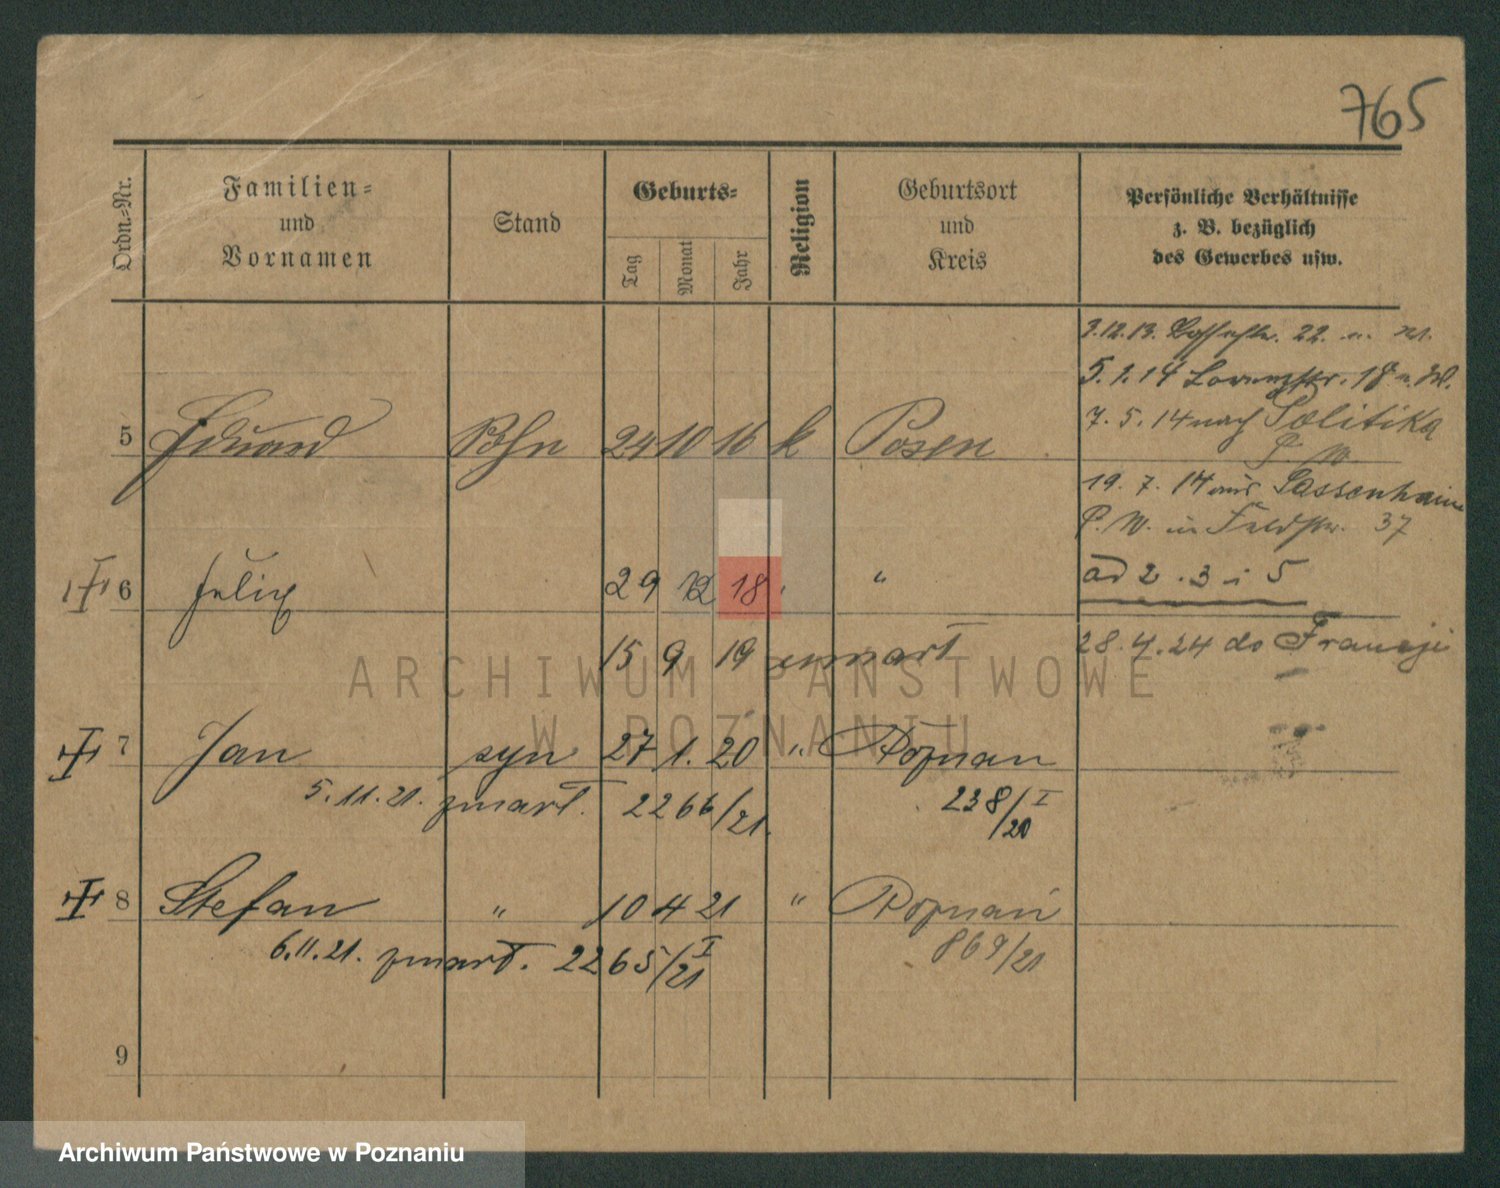 765
Ordn.-Nr.
Familien-
und
Vornamen
Stand
Geburts-
Tag
Monat
Jahr
Religion
Geburtsort
und
Kreis
Persönliche Verhältnisse
z. B. bezüglich
des Gewerbes usw.
3.12.13. 22.
5.1.14 18
7. 5. 14 nach Politika
P. W.
5 Eduard Sohn 24 10 16 k Posen
19. 7. 14 aus Sassenheim
P. W. in Feldstr. 37
6 Felix 29 12 18 "
ad 2. 3 i 5
15 9 19 zmart
28.4.24 do Francji
7 Jan syn 27 1. 20 " Poznań
5.11.21. zmart. 2266/21.
238/I
/20
8 Stefan " 10 4 21 " Poznań
6.11.21. zmart. 2265/I
/21
869/21
9
ARCHIWUM PAŃSTWOWE
W POZNANIU
Archiwum Państwowe w Poznaniu